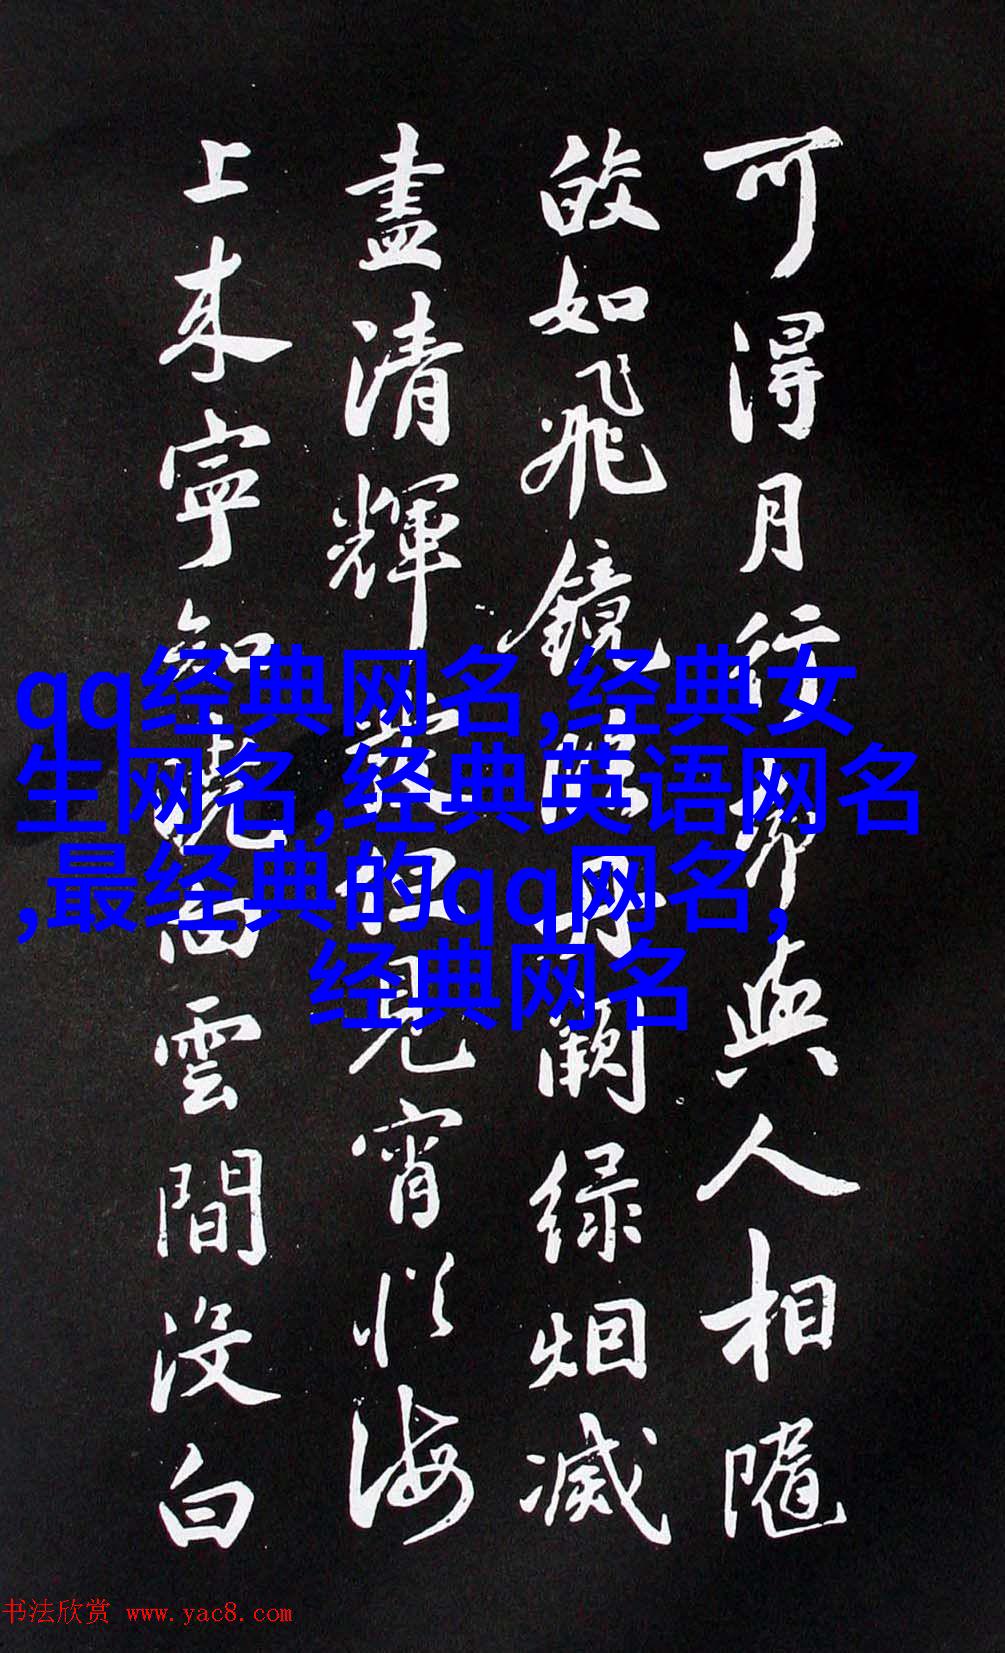 可得月行却與人相隨
皎如飛鏡臨丹闕緑烟滅
盡清輝發但見宵從海
上来寧知曉向雲間没白
qq经典网名,经典女
生网名,经典英语网名
,最经典的qq网名,
经典网名
书法欣赏 www.yac8.com